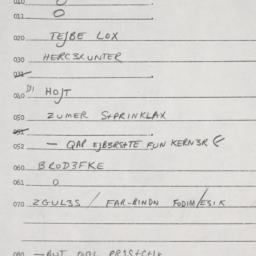 010 O
O
020 TEJBE LOX
030 HERC3KUNTER
031
040 DI HOJT
050 ZUMER SPRINKLAX
051
052 — QAP EJB3RSTE FUN KERN3R
060 BROD3FKE
061 O
070 ZGUL3S / FAR-BINDN FODIM/ESIK
080